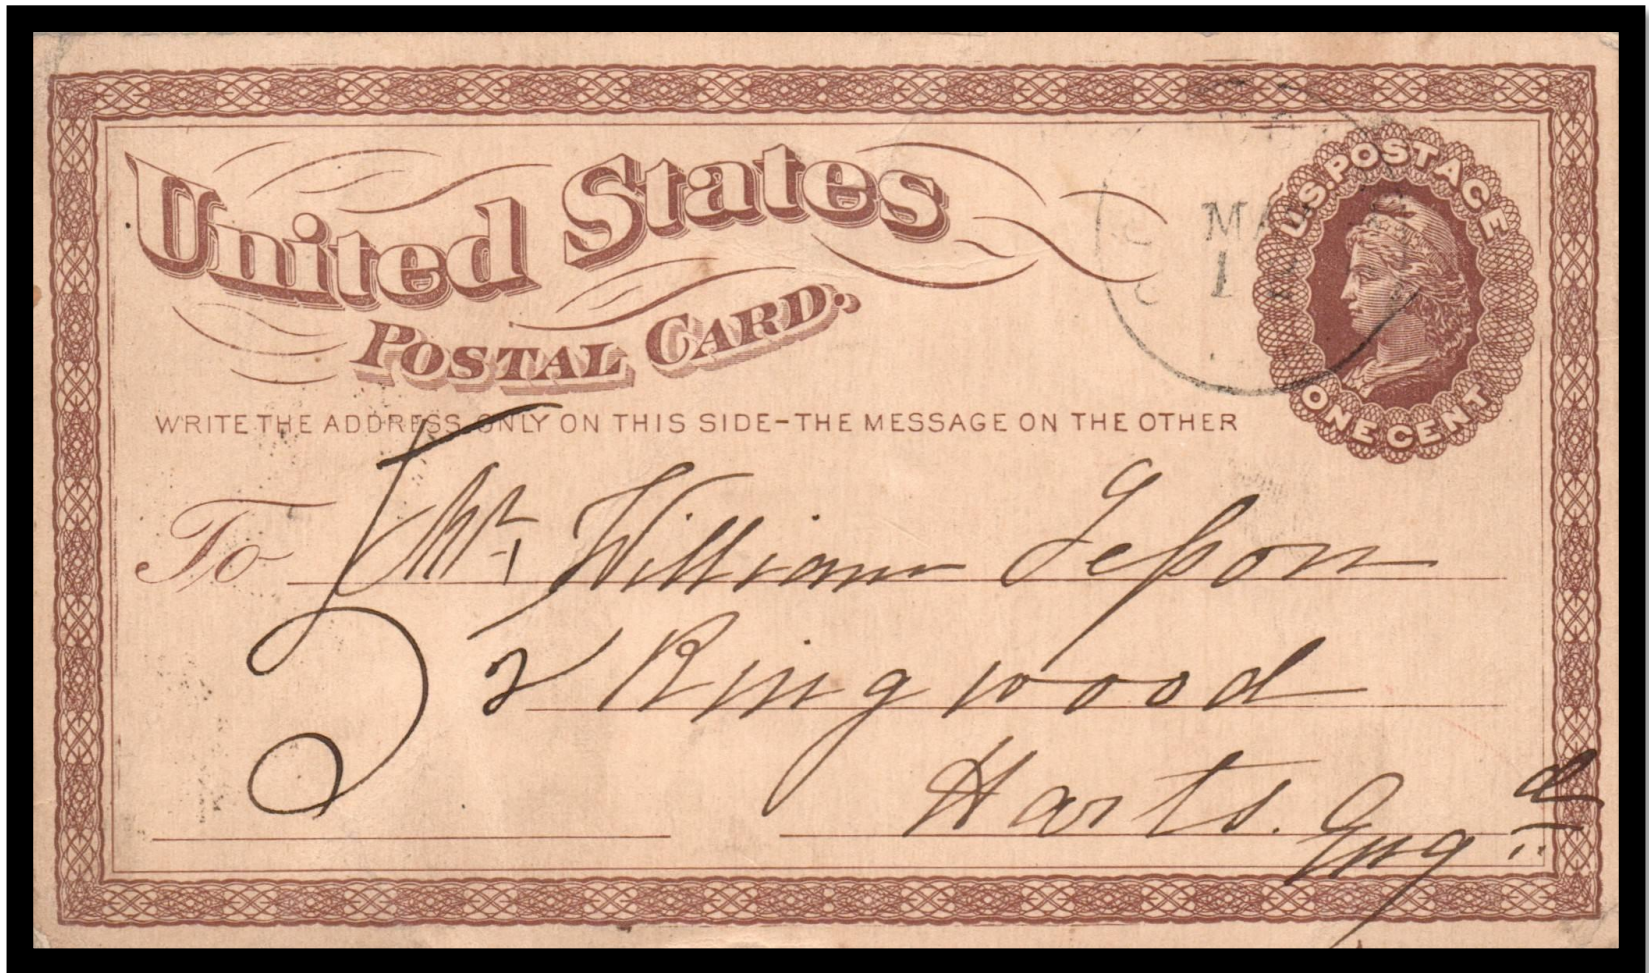 United States
POSTAL CARD.
U.S. POSTAGE
ONE CENT
WRITE THE ADDRESS ONLY ON THIS SIDE-THE MESSAGE ON THE OTHER
To Mr. William
Ringwood
Hants. Eng.d